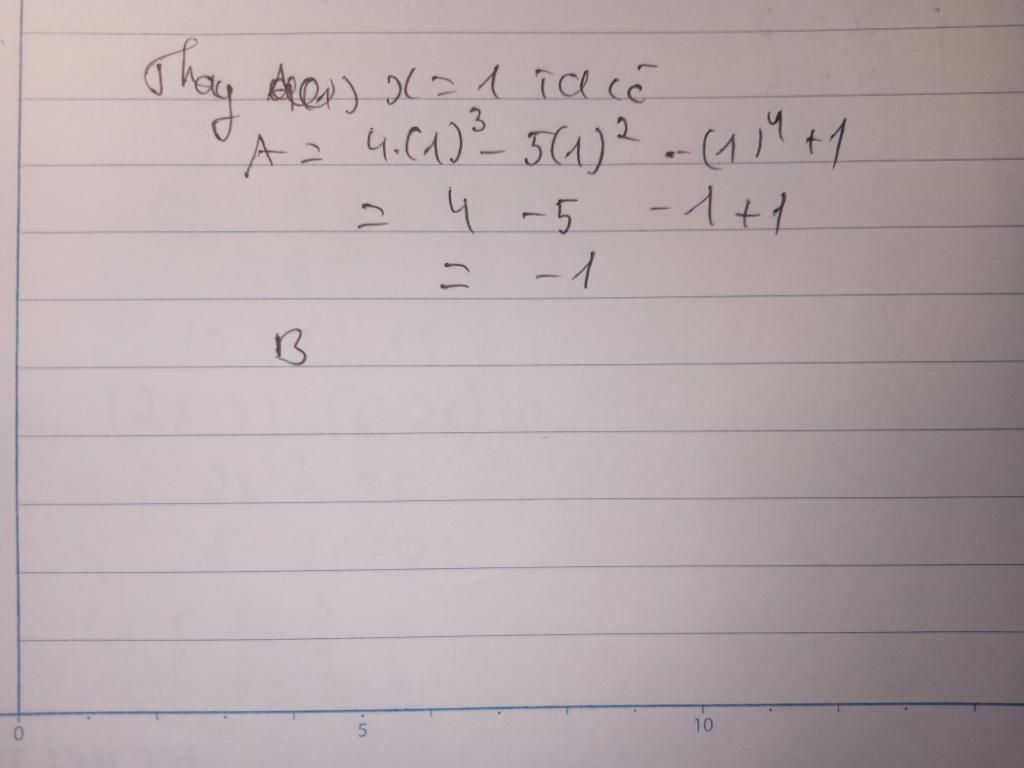 Thay x = 1 ta có
A = 4.(1)³ - 5(1)² - (1)⁴ + 1
= 4 - 5 - 1 + 1
= -1
B
0 5 10